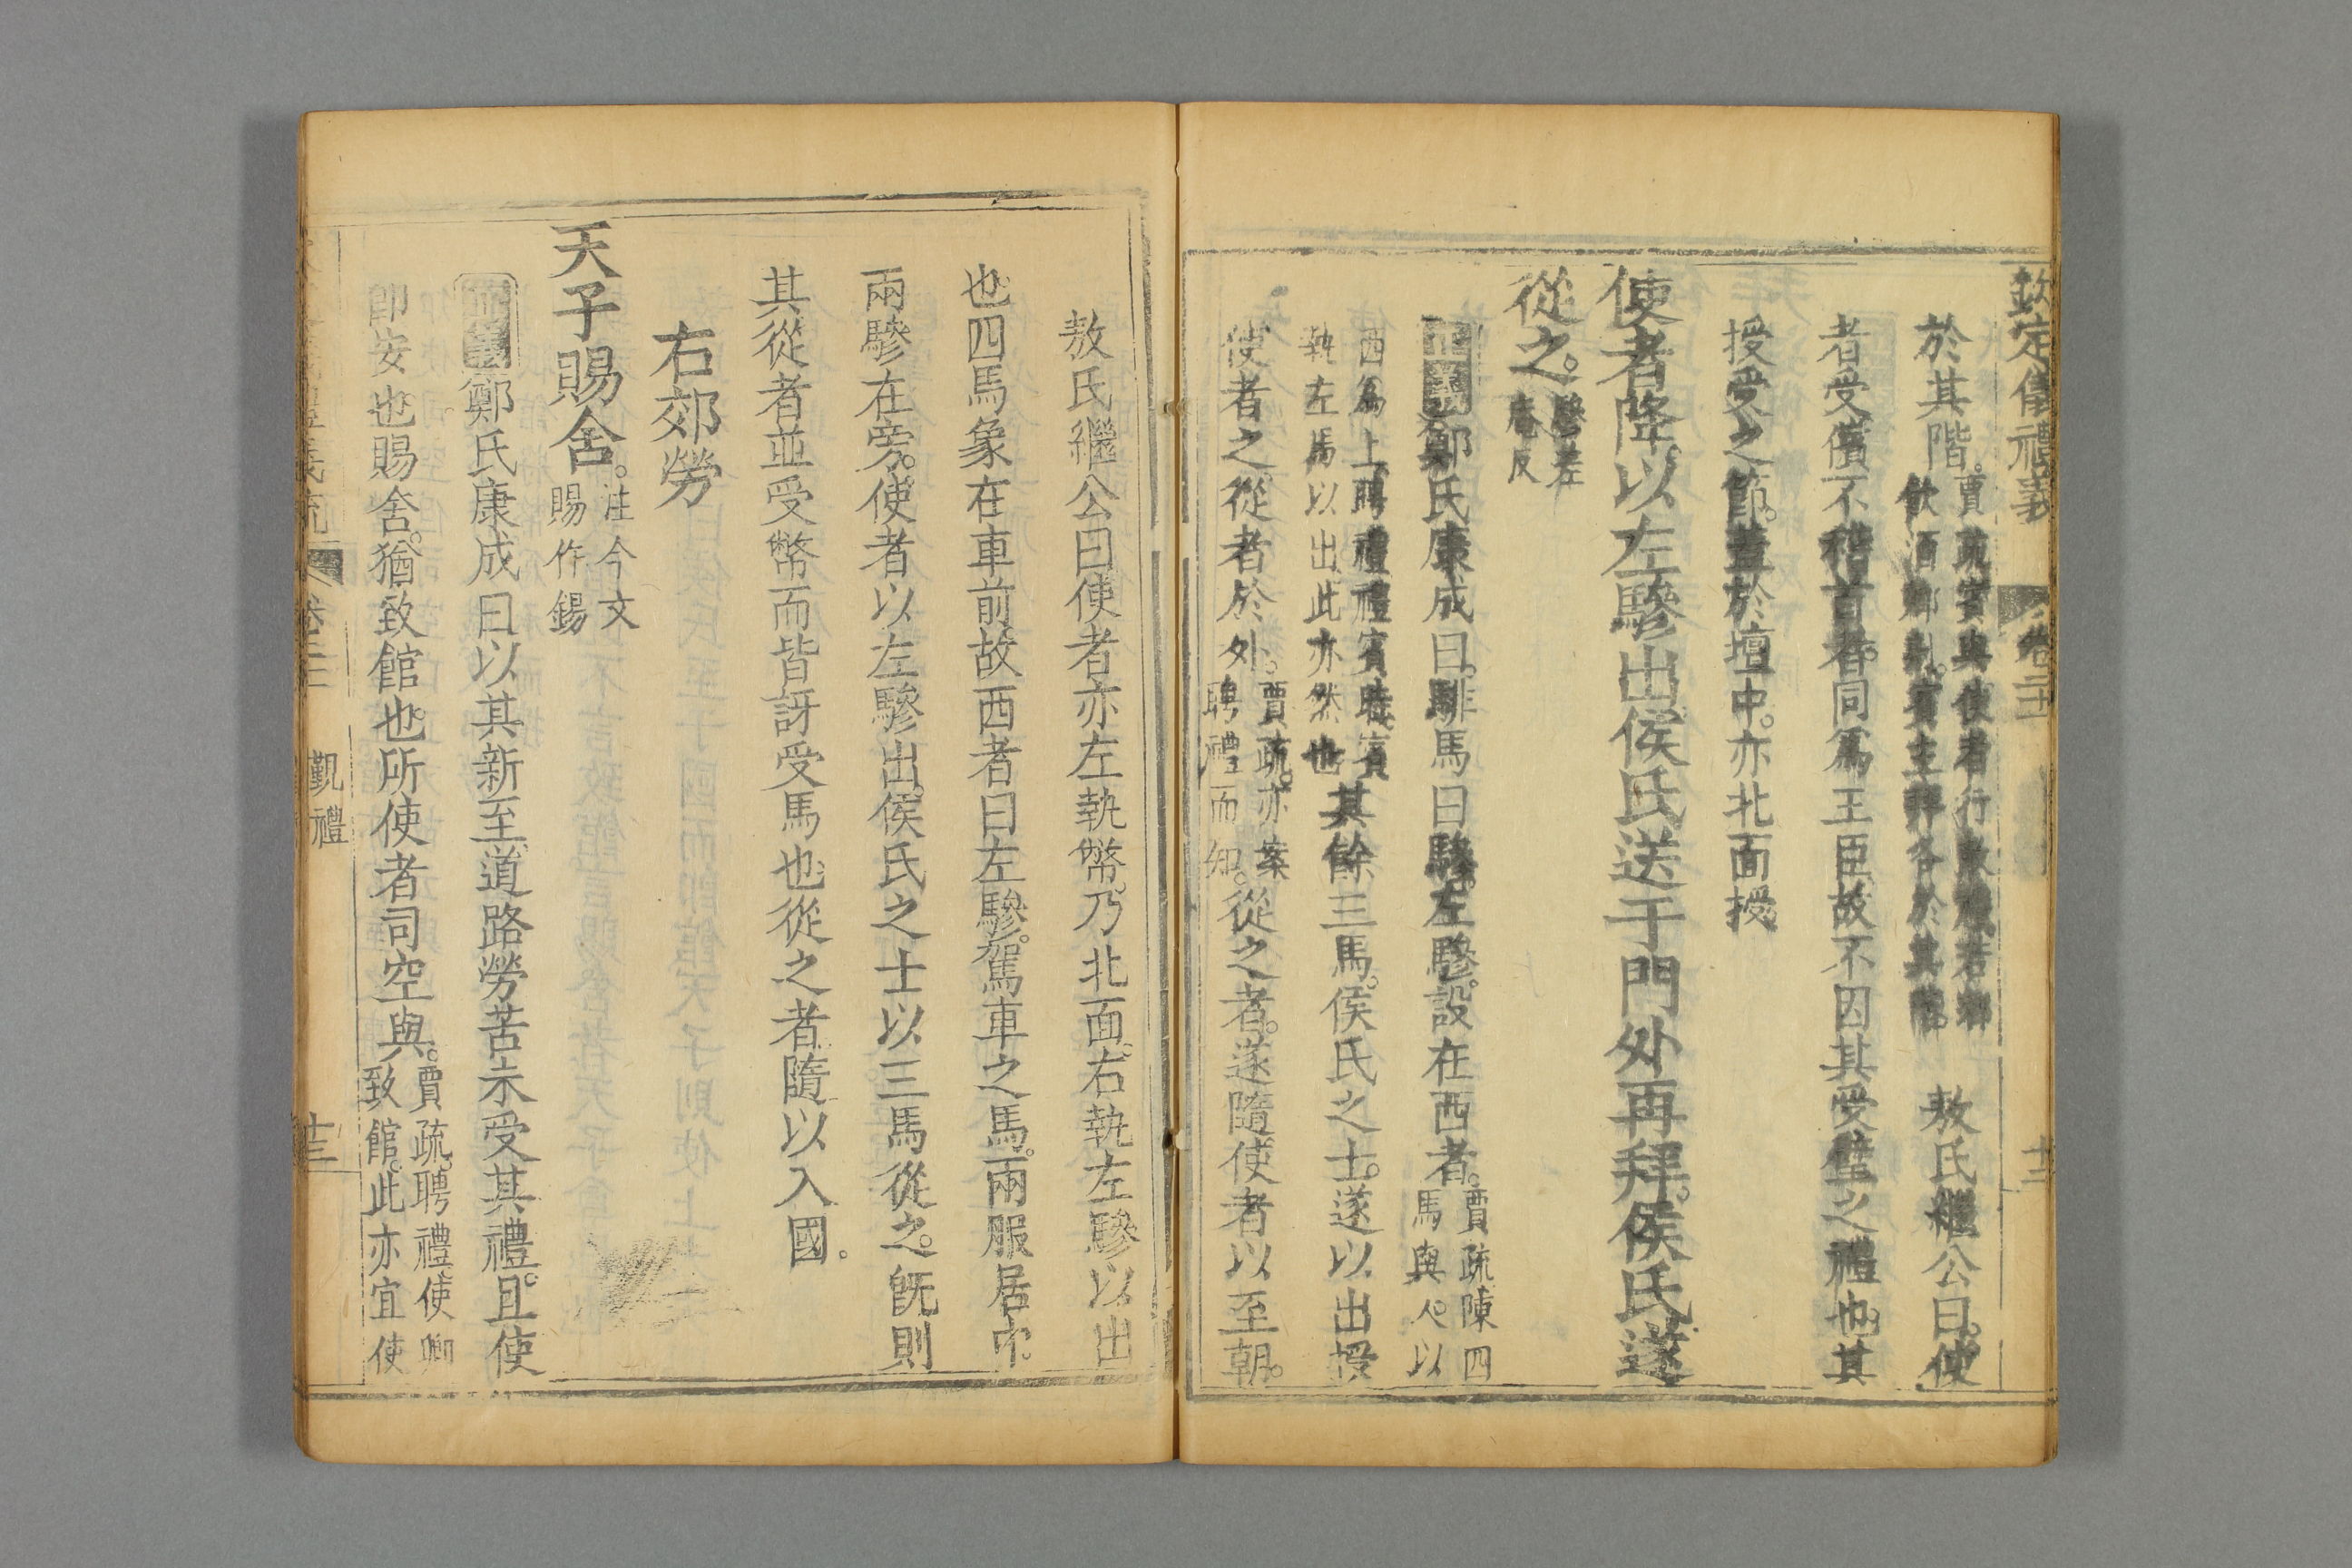 欽定儀禮義 卷二十 十二
於其階。賈疏賓與使者行敵禮若鄉
飲酒鄉射。賓主拜各於其階。 敖氏繼公曰。使
者受儐不稽首者。同爲王臣。故不因其受璧之禮也。其
授受之節。蓋於壇中。亦北面授。
使者降。以左驂出。侯氏送于門外再拜。侯氏遂
從之。驂差
庵反
正義鄭氏康成曰。騑馬曰驂。左驂。設在西者。賈疏陳四
馬與人。以
西爲上。聘禮禮賓時。賓
執左馬以出。此亦然也其餘三馬。侯氏之士。遂以出授
使者之從者於外。賈疏。亦案
聘禮而知。從之者。遂隨使者以至朝。
敖氏繼公曰使者亦左執幣。乃北面。右執左驂以出
也。四馬象在車前。故西者曰左驂。駕車之馬。兩服居中。
兩驂在旁。使者以左驂出。侯氏之士以三馬從之。旣則
其從者並受幣而皆訝受馬也。從之者。隨以入國。
右郊勞
天子賜舍。注今文
賜作錫
正義鄭氏康成曰以其新至。道路勞苦。未受其禮。且使
卽安也。賜舍。猶致館也。所使者司空與。賈疏。聘禮。使卿
致館。此亦宜使
卷二十 覲禮 十三